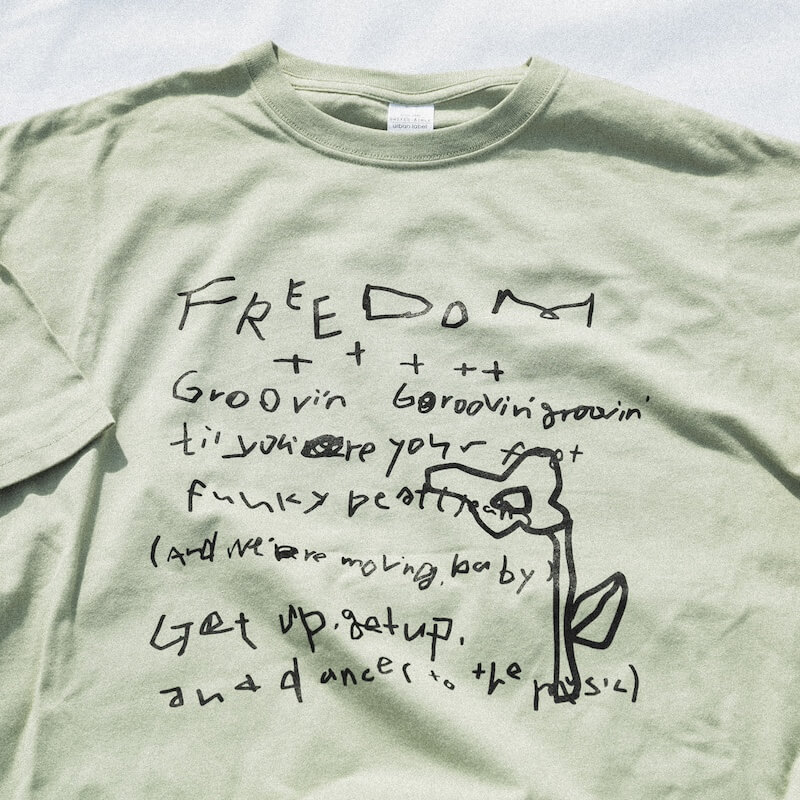 urban label
FREEDOM
++ + ++
Groovin Groovin' groovin'
til you are your foot
funky beat! yeah
(And We're moving, baby)
Get up. get up.
and dance (to the music)